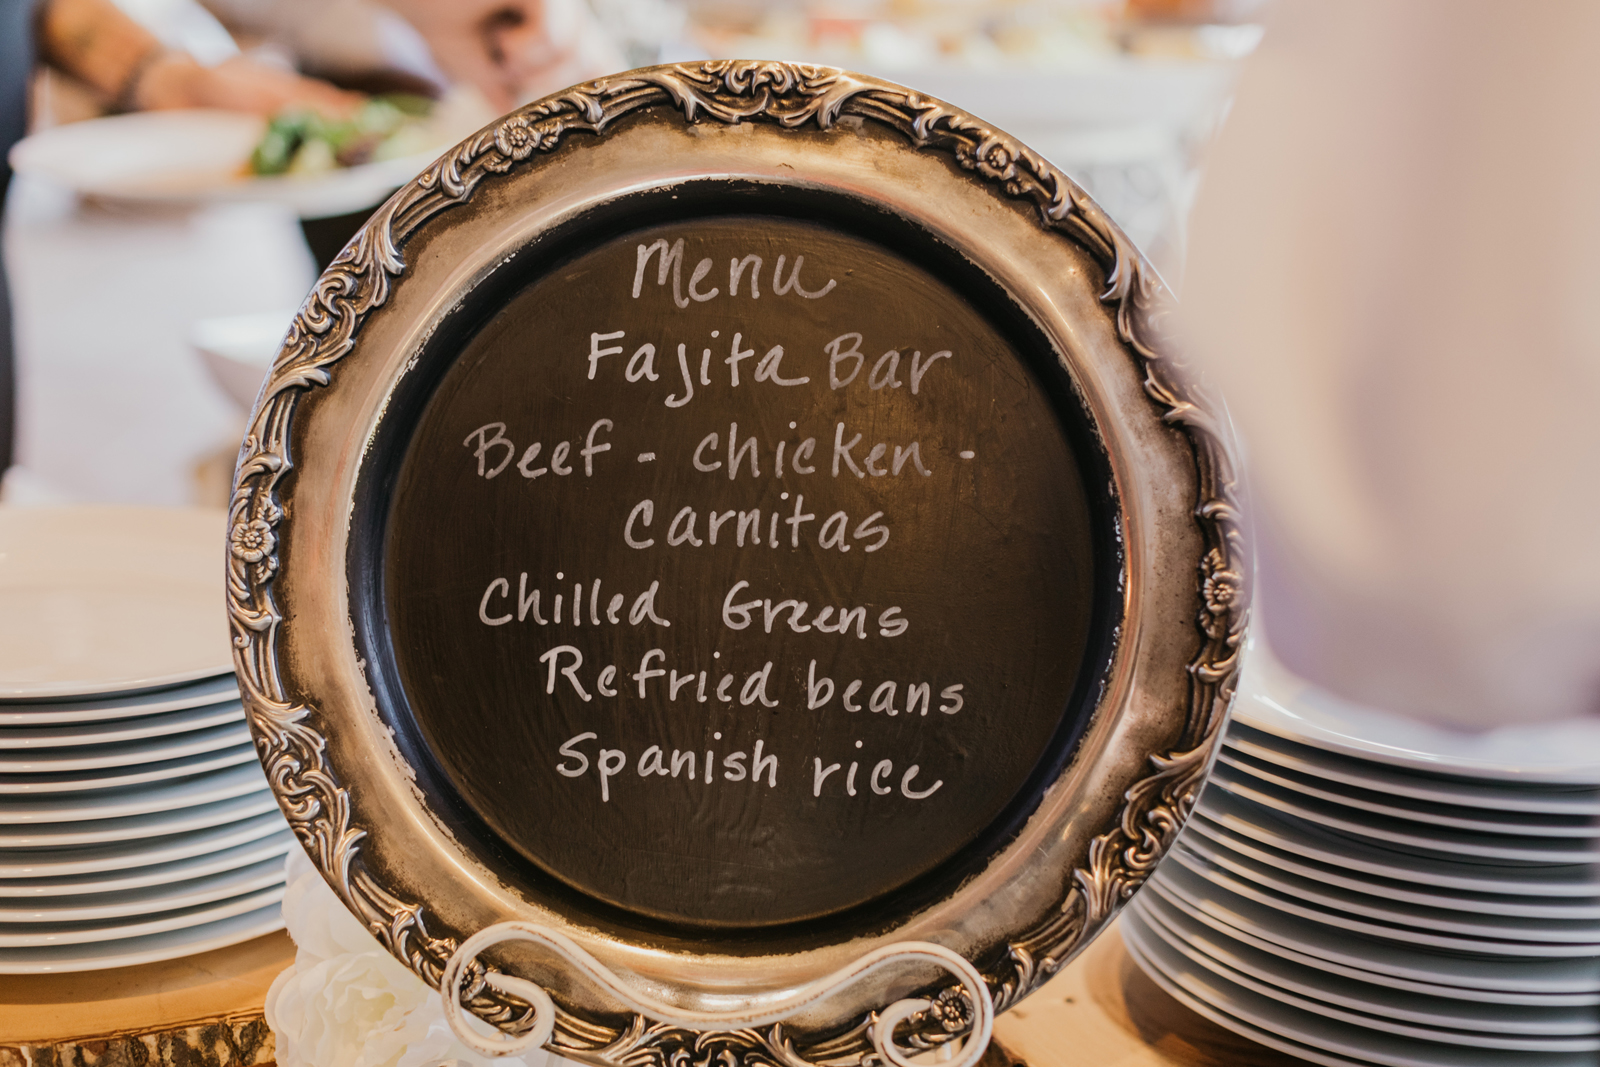 Menu
Fajita Bar
Beef - chicken -
Carnitas
Chilled Greens
Refried beans
Spanish rice